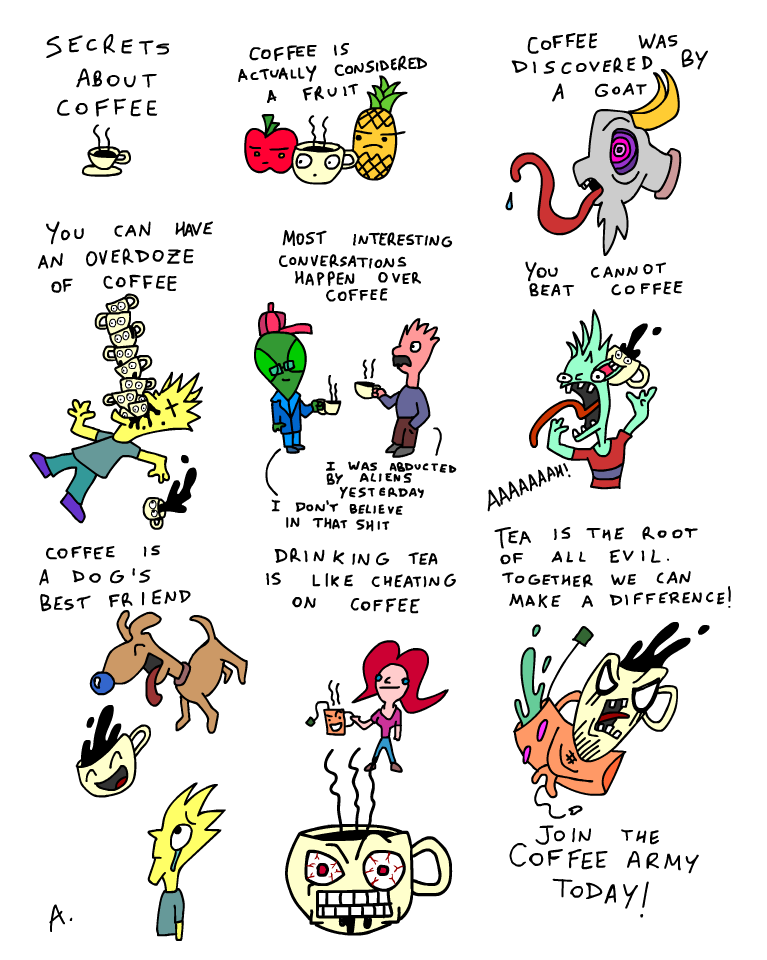 SECRETS
ABOUT
COFFEE
COFFEE IS
ACTUALLY CONSIDERED
A FRUIT
COFFEE WAS
DISCOVERED BY
A GOAT
YOU CAN HAVE
AN OVERDOZE
OF COFFEE
MOST INTERESTING
CONVERSATIONS
HAPPEN OVER
COFFEE
I WAS ABDUCTED
BY ALIENS
YESTERDAY
I DON'T BELIEVE
IN THAT SHIT
YOU CANNOT
BEAT COFFEE
AAAAAAAH!
COFFEE IS
A DOG'S
BEST FRIEND
DRINKING TEA
IS LIKE CHEATING
ON COFFEE
TEA IS THE ROOT
OF ALL EVIL.
TOGETHER WE CAN
MAKE A DIFFERENCE!
JOIN THE
COFFEE ARMY
TODAY!
A.